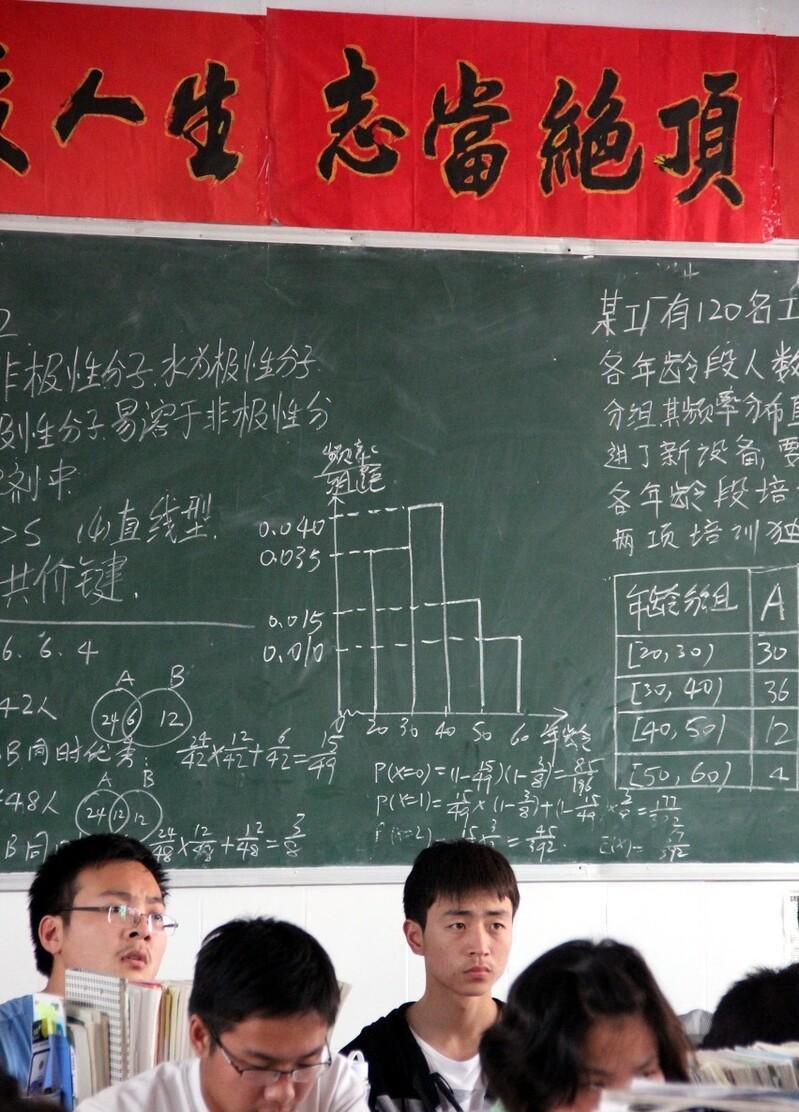 人生 志當絕頂
非极性分子.水为极性分子.
极性分子.易溶于非极性分
剂中.
>S (4)直线型.
共价键.
6.6.4
42人
A B
24 6 12
B同时优秀: 24/42×12/42+6/42=15/49
48人
A B
24 12 12
B同 24/48×12/48+12/48=3/8
频率
组距
0.040
0.035
0.015
0.010
0 20 30 40 50 60 年龄
P(X=0)=(1-15/49)(1-3/8)=85/196
P(X=1)=15/49×(1-3/8)+(1-15/49)×3/8=
P(X=2) 15 3 = 45/392.
E(X)=
某工厂有120名工
各年龄段人数
分组.其频率分布直
进了新设备,要
各年龄段培
两项培训独
年龄分组 A
[20,30) 30
[30,40) 36
[40,50) 12
[50,60) 4